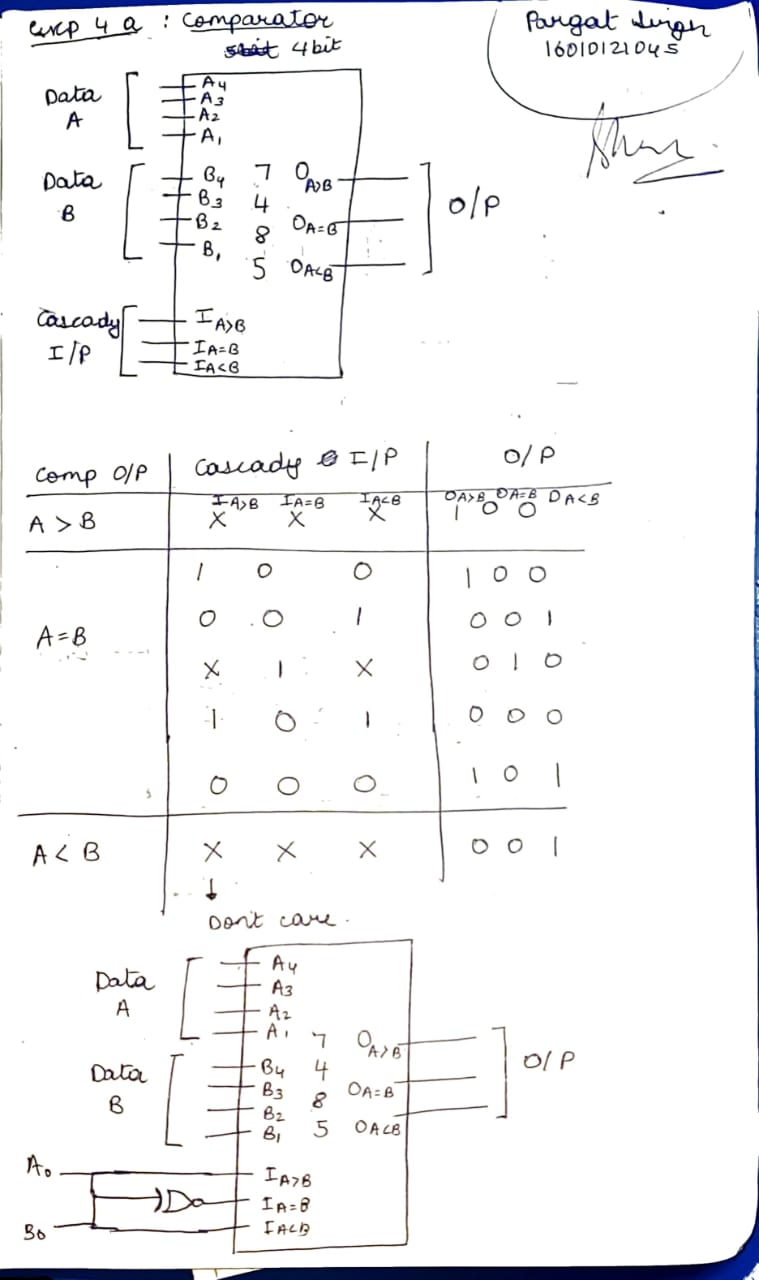 Exp 4 a : Comparator
4 bit
Pargat Singh
16010121045
Data
A
A4
A3
A2
A1
Data
B
B4
B3
B2
B1
7
4
8
5
OA>B
OA=B
OA<B
O/P
Cascady
I/P
IA>B
IA=B
IA<B
Comp O/P Cascady I/P O/P
IA>B IA=B IA<B OA>B OA=B OA<B
A > B X X X 1 0 0
1 0 0 1 0 0
0 0 1 0 0 1
A=B
X 1 X 0 1 0
1 0 1 0 0 0
0 0 0 1 0 1
A < B X X X 0 0 1
↓
Don't care.
Data
A
A4
A3
A2
A1
Data
B
B4
B3
B2
B1
7
4
8
5
OA>B
OA=B
OA<B
O/P
A0
B0
IA>B
IA=B
IA<B